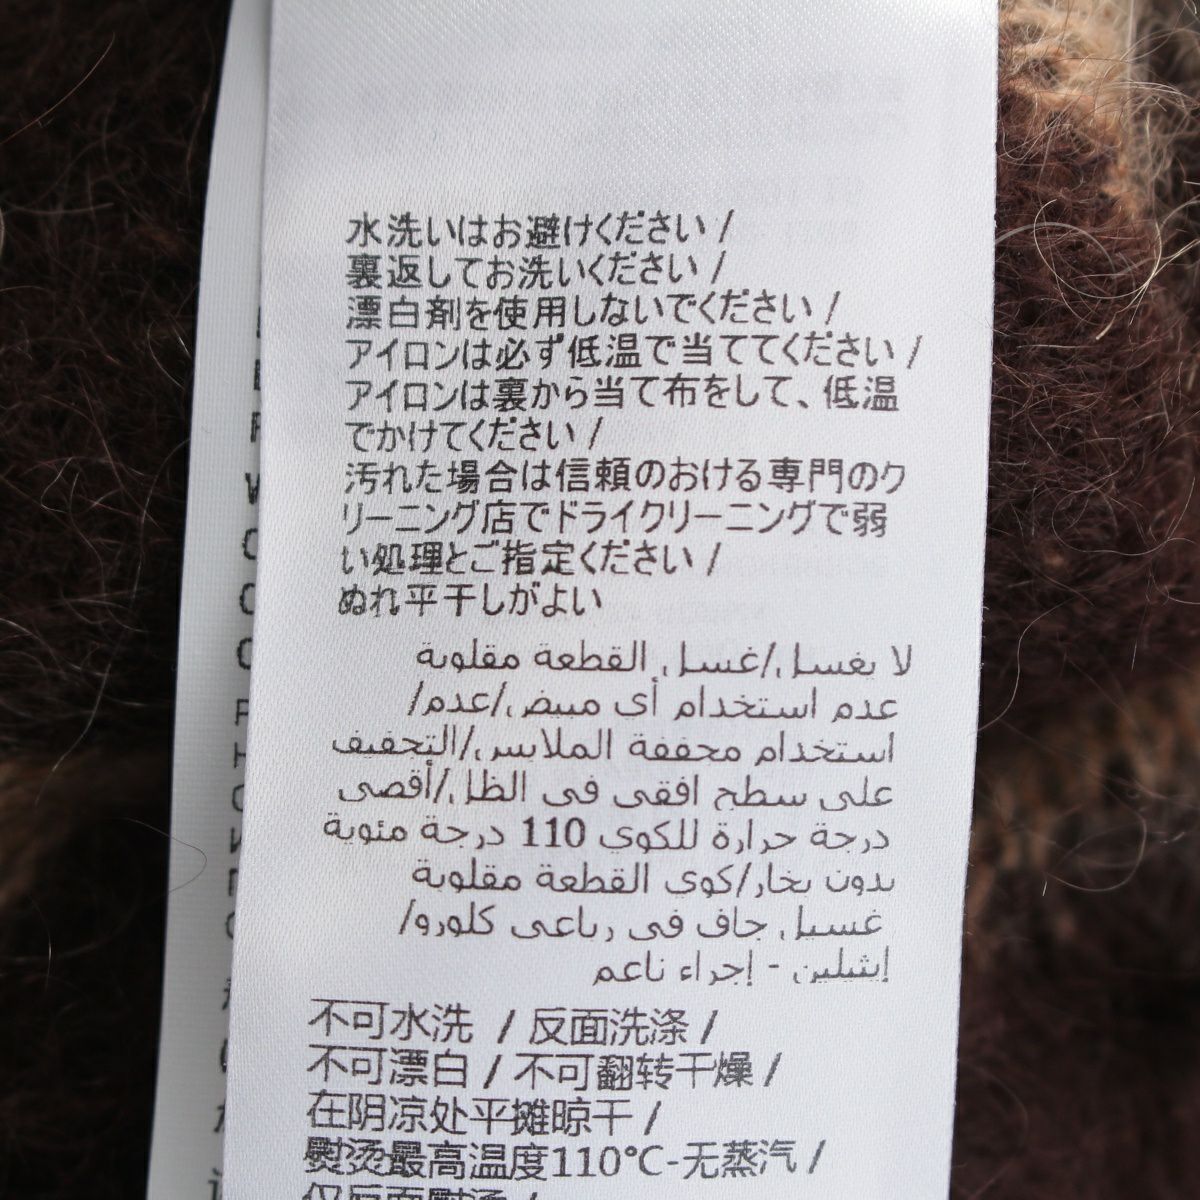 水洗いはお避けください /
裏返してお洗いください /
漂白剤を使用しないでください /
アイロンは必ず低温で当ててください /
アイロンは裏から当て布をして、低温
でかけてください /
汚れた場合は信頼のおける専門のク
リーニング店でドライクリーニングで弱
い処理とご指定ください /
ぬれ平干しがよい
لا يغسل/غسل القطعة مقلوبة
عدم استخدام أي مبيض/عدم/
استخدام مجففة الملابس/التجفيف
على سطح افقي في الظل/أقصى
درجة حرارة للكوي 110 درجة مئوية
بدون بخار/كوي القطعة مقلوبة
غسيل جاف في رباعي كلورو/
إيثيلين - إجراء ناعم
不可水洗 / 反面洗涤 /
不可漂白 / 不可翻转干燥 /
在阴凉处平摊晾干 /
熨烫最高温度110°C-无蒸汽 /
仅反面熨烫 /